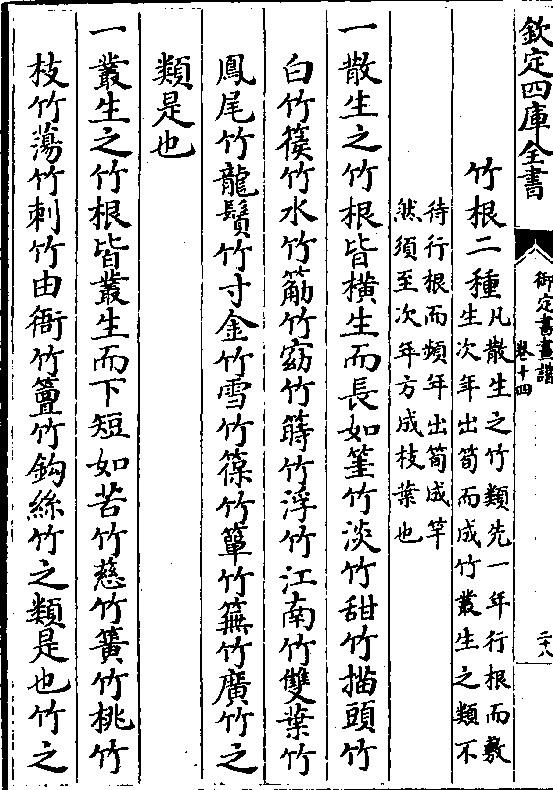 欽定四庫全書
御定書畫譜
卷十四
二十八
竹根二種
凡散生之竹類先一年行根而敷
生次年出筍而成竹叢生之類不
待行根而頻年出筍成竿
然須至次年方成枝葉也
一散生之竹根皆橫生而長如篁竹淡竹甜竹描頭竹
白竹篌竹水竹簕竹窈竹蒔竹浮竹江南竹雙葉竹
鳳尾竹龍鬚竹寸金竹雪竹篠竹簞竹䉑竹廣竹之
類是也
一叢生之竹根皆叢生而下短如苦竹慈竹簧竹桃竹
枝竹蕩竹刺竹由衙竹簹竹鈎絲竹之類是也竹之